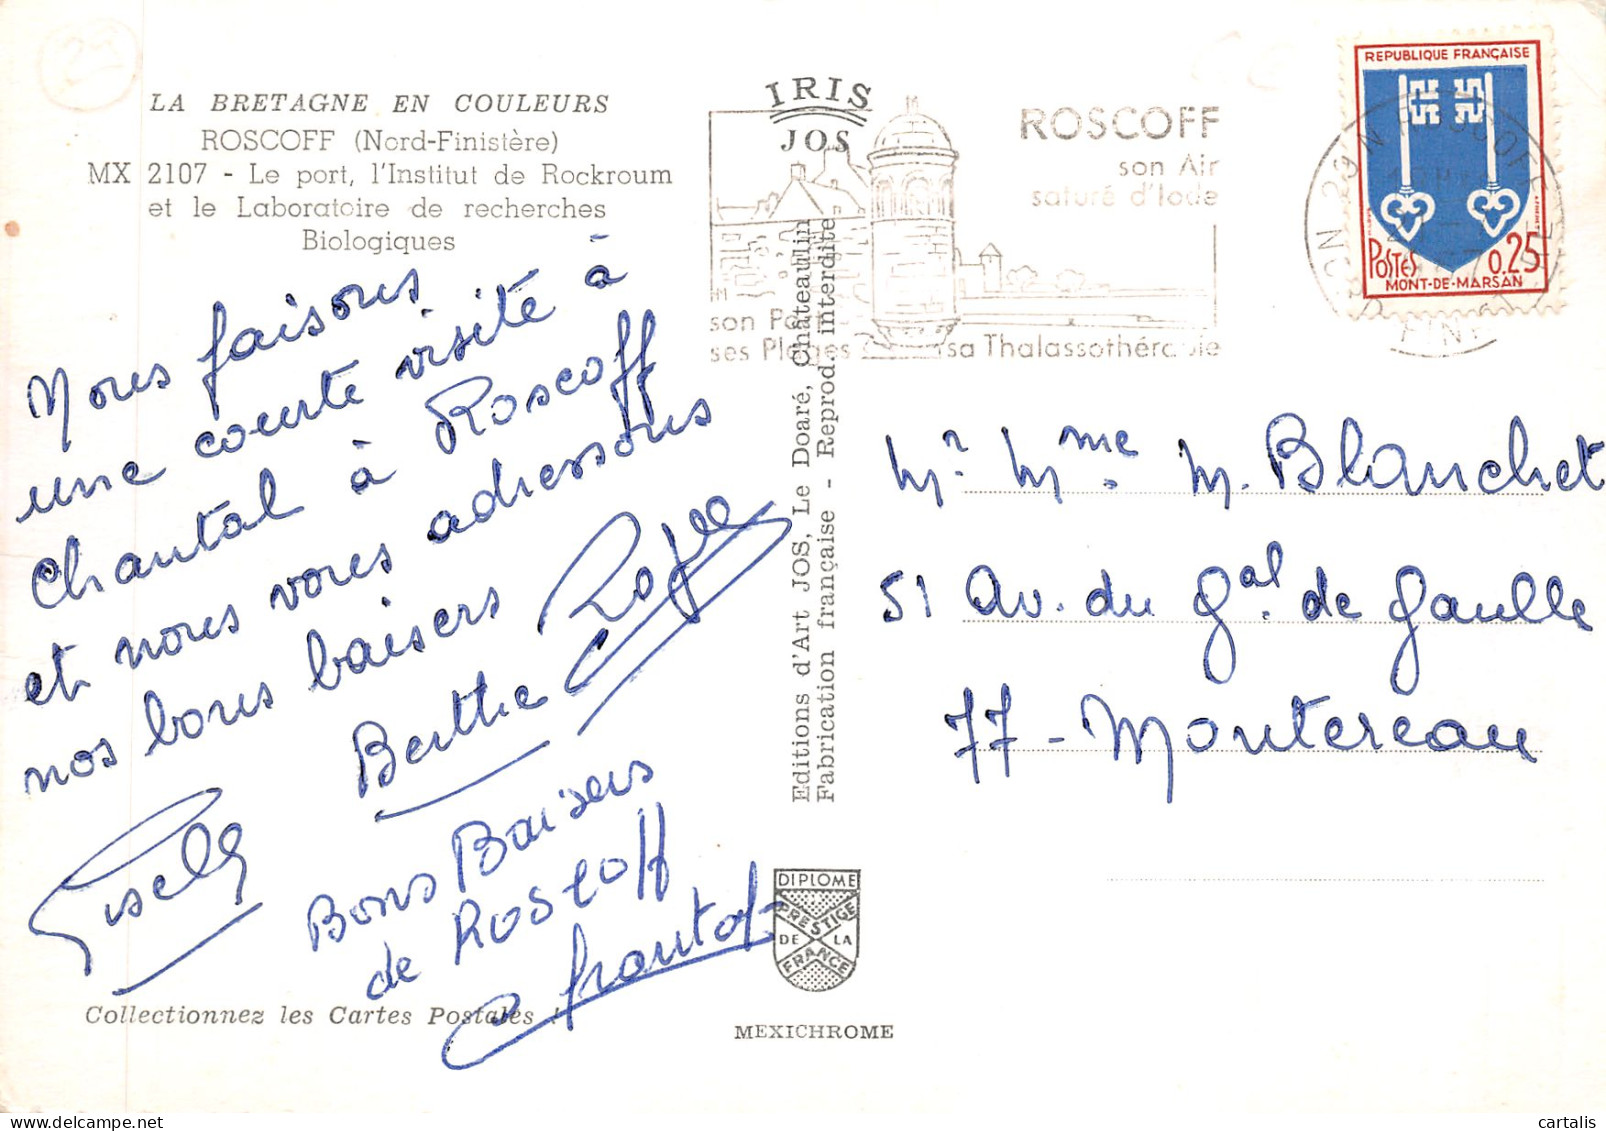 LA BRETAGNE EN COULEURS
ROSCOFF (Nord-Finistère)
MX 2107 - Le port, l'Institut de Rockroum
et le Laboratoire de recherches
Biologiques
Nous faisons
une courte visite à
Chantal à Roscoff
et nous vous adressons
nos bons baisers
Roger
Berthe
Gisèle
Bons Baisers
de Roscoff
Chantal
Collectionnez les Cartes Postales !
IRIS
JOS
Editions d'Art JOS, Le Doaré, Châteaulin
Fabrication française - Reprod. interdite
DIPLOME
PRESTIGE
DE LA
FRANCE
MEXICHROME
ROSCOFF
son Air
saturé d'Iode
son
ses Plages sa Thalassothérapie
REPUBLIQUE FRANÇAISE
POSTES 0.25
MONT-DE-MARSAN
29 N ROSCOFF
Mr. Mme. M. Blanchet
51 Av. du Gal. de Gaulle
77 - Montereau
cartalis
delcampe.net